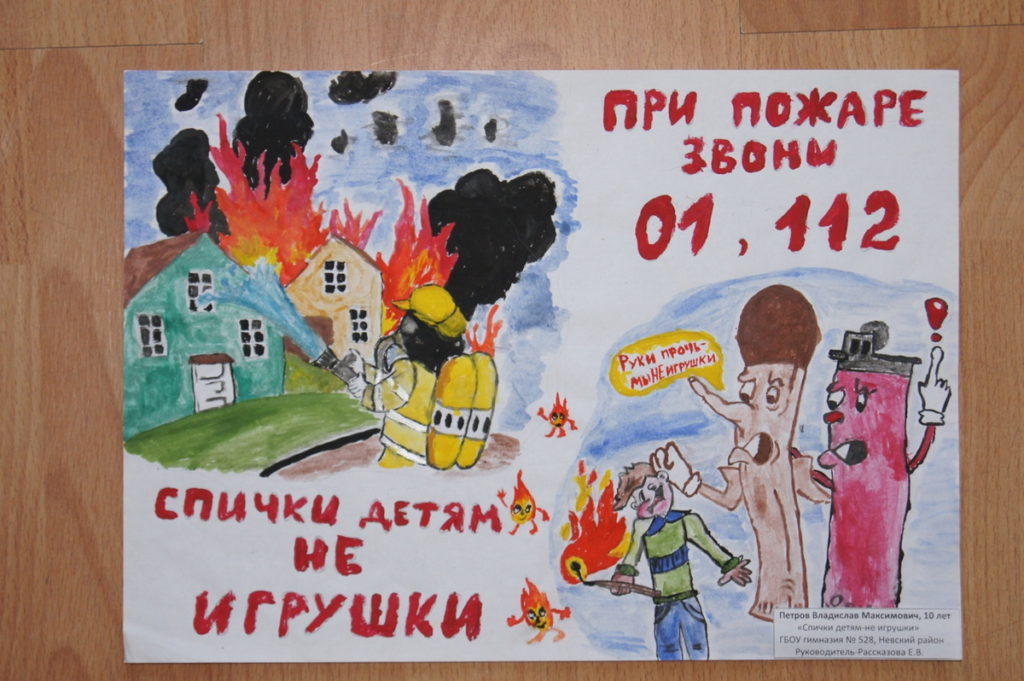 ПРИ ПОЖАРЕ
ЗВОНИ
01, 112
РУКИ ПРОЧЬ-
МЫ НЕ ИГРУШКИ
СПИЧКИ ДЕТЯМ
НЕ
ИГРУШКИ
Петров Владислав Максимович, 10 лет
«Спички детям-не игрушки»
ГБОУ гимназия № 528, Невский район
Руководитель-Рассказова Е.В.